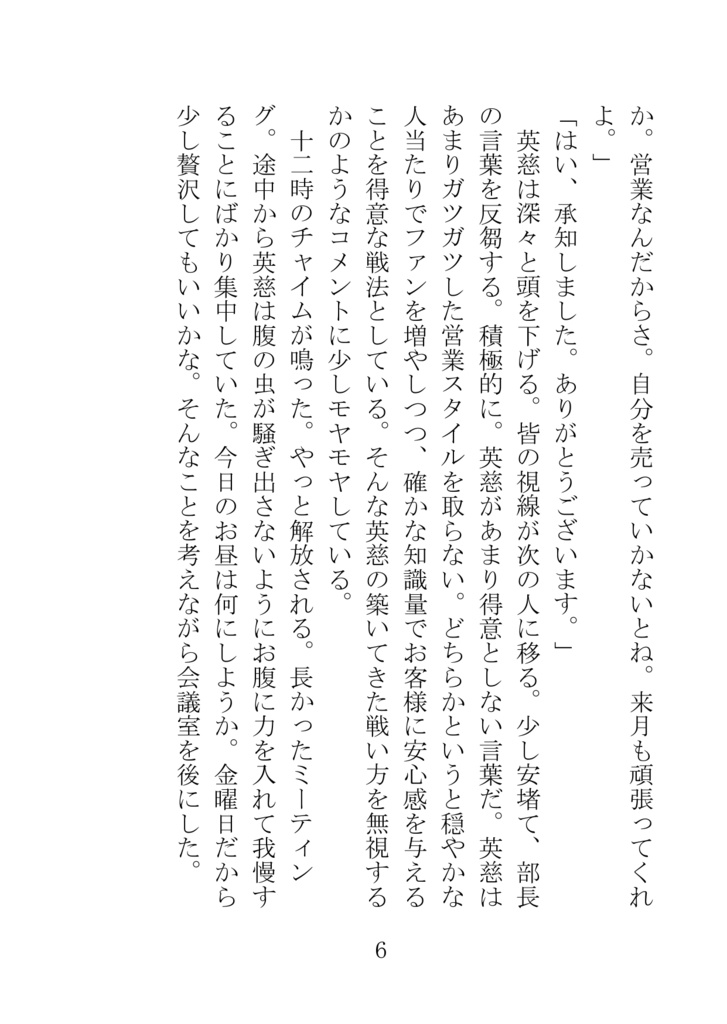 か。営業なんだからさ。自分を売っていかないとね。来月も頑張ってくれ
よ。」
「はい、承知しました。ありがとうございます。」
　英慈は深々と頭を下げる。皆の視線が次の人に移る。少し安堵て、部長
の言葉を反芻する。積極的に。英慈があまり得意としない言葉だ。英慈は
あまりガツガツした営業スタイルを取らない。どちらかというと穏やかな
人当たりでファンを増やしつつ、確かな知識量でお客様に安心感を与える
ことを得意な戦法としている。そんな英慈の築いてきた戦い方を無視する
かのようなコメントに少しモヤモヤしている。
　十二時のチャイムが鳴った。やっと解放される。長かったミーティン
グ。途中から英慈は腹の虫が騒ぎ出さないようにお腹に力を入れて我慢す
ることにばかり集中していた。今日のお昼は何にしようか。金曜日だから
少し贅沢してもいいかな。そんなことを考えながら会議室を後にした。
6